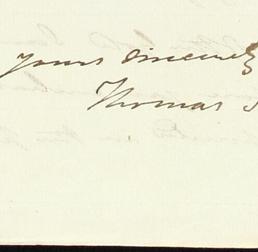 yours sincerely
Thomas